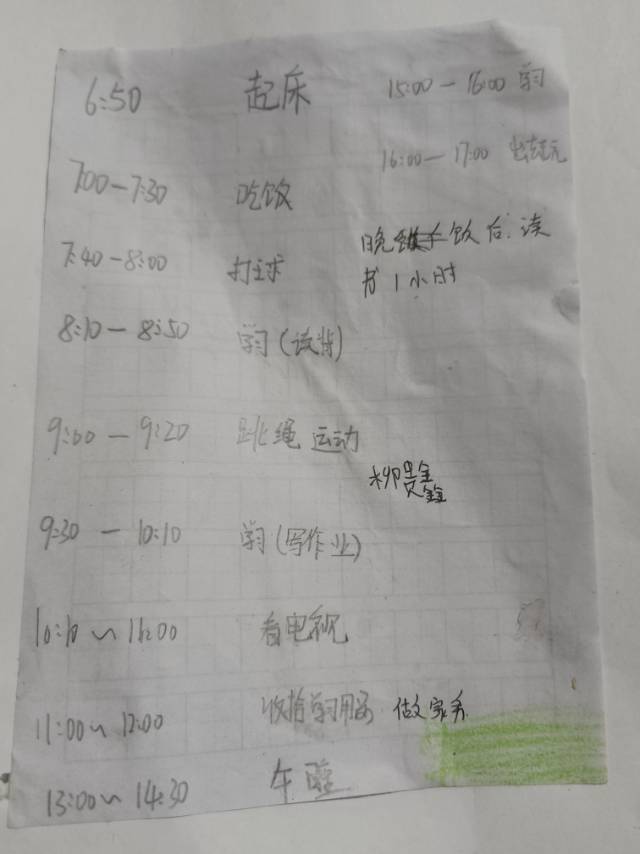 6:50 起床
7:00－7:30 吃饭
7:40－8:00 打球
8:10－8:50 学习(读书)
9:00－9:20 跳绳 运动
9:30－10:10 学习(写作业)
10:10～11:00 看电视
11:00～12:00 收拾学习用品 做家务
13:00～14:30 午睡
15:00－16:00 学习
16:00－17:00 出去玩
晚饭后：读
书1小时
柳贵鑫